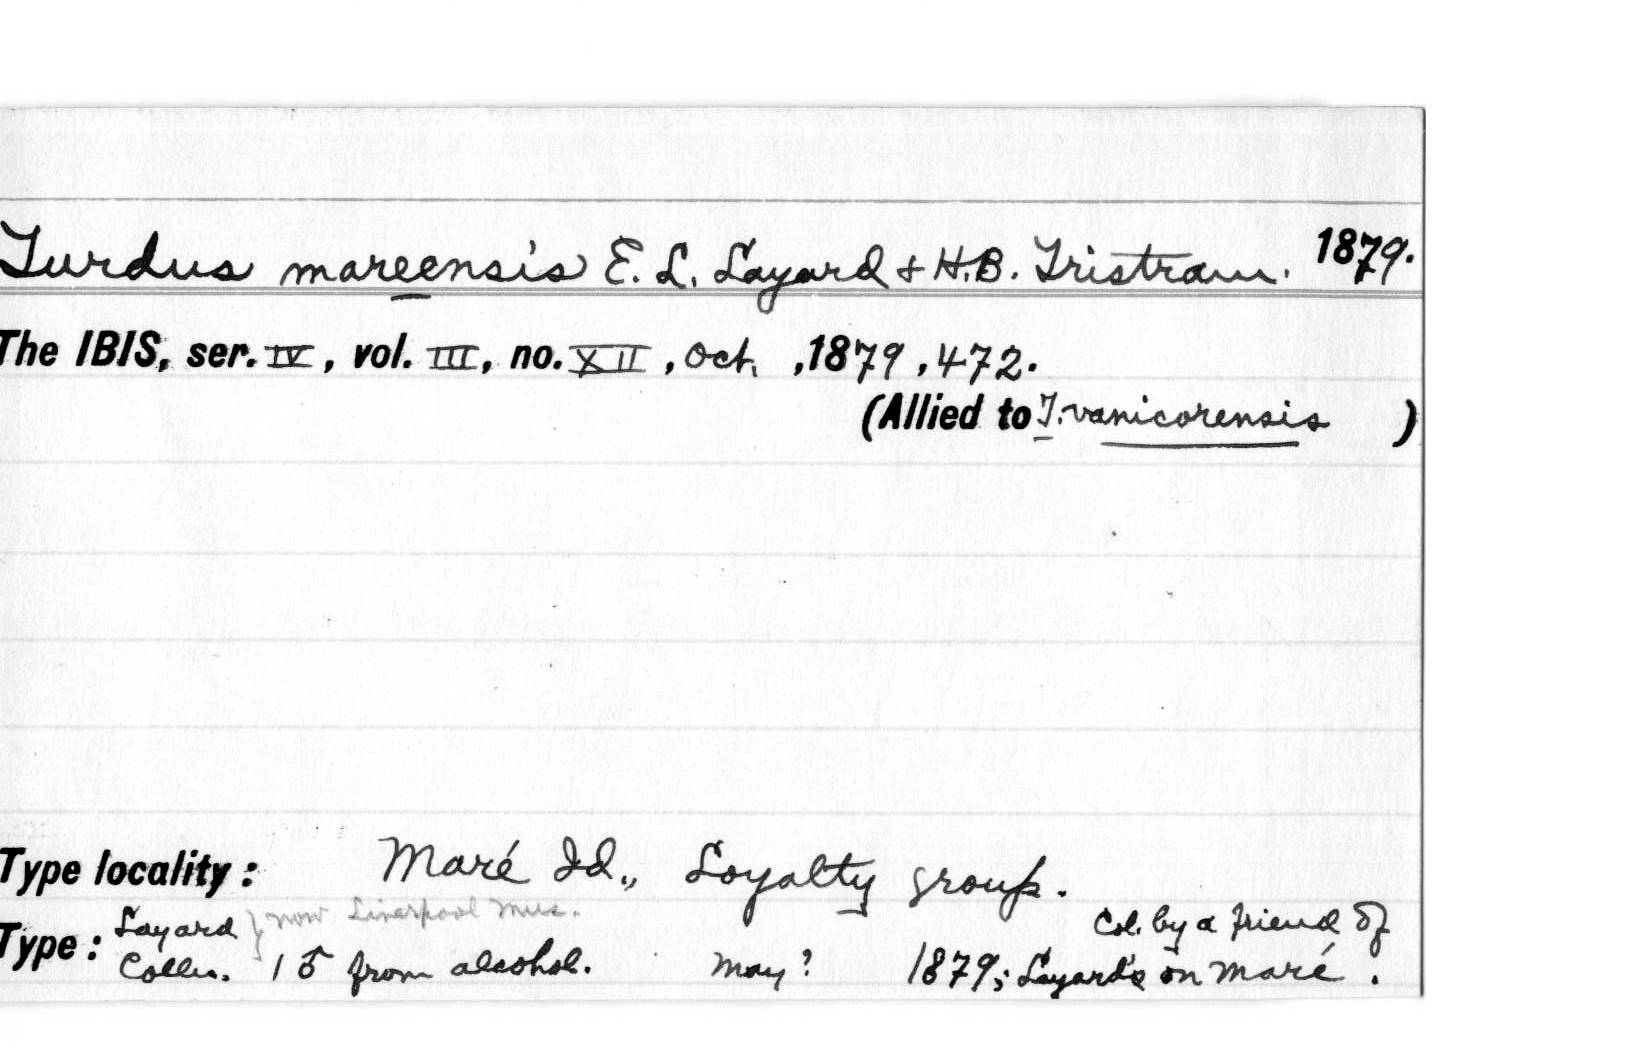 Turdus mareensis E. L. Layard & H.B. Tristram. 1879.
The IBIS, ser. IV, vol. III, no. XII, Oct. ,1879 ,472.
(Allied to T. vanicorensis )
Type locality: Maré Id., Loyalty group.
Layard } now Liverpool Mus. Col. by a friend of
Type: Colln. 1 ♂ from alcohol. May? 1879; Layard's on Maré.